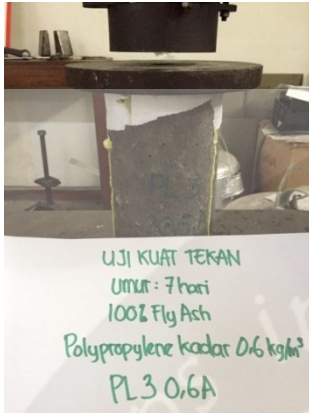 UJI KUAT TEKAN
Umur : 7 hari
100% Fly Ash
Polypropylene kadar 0.6 kg/m³
PL 3 0,6A